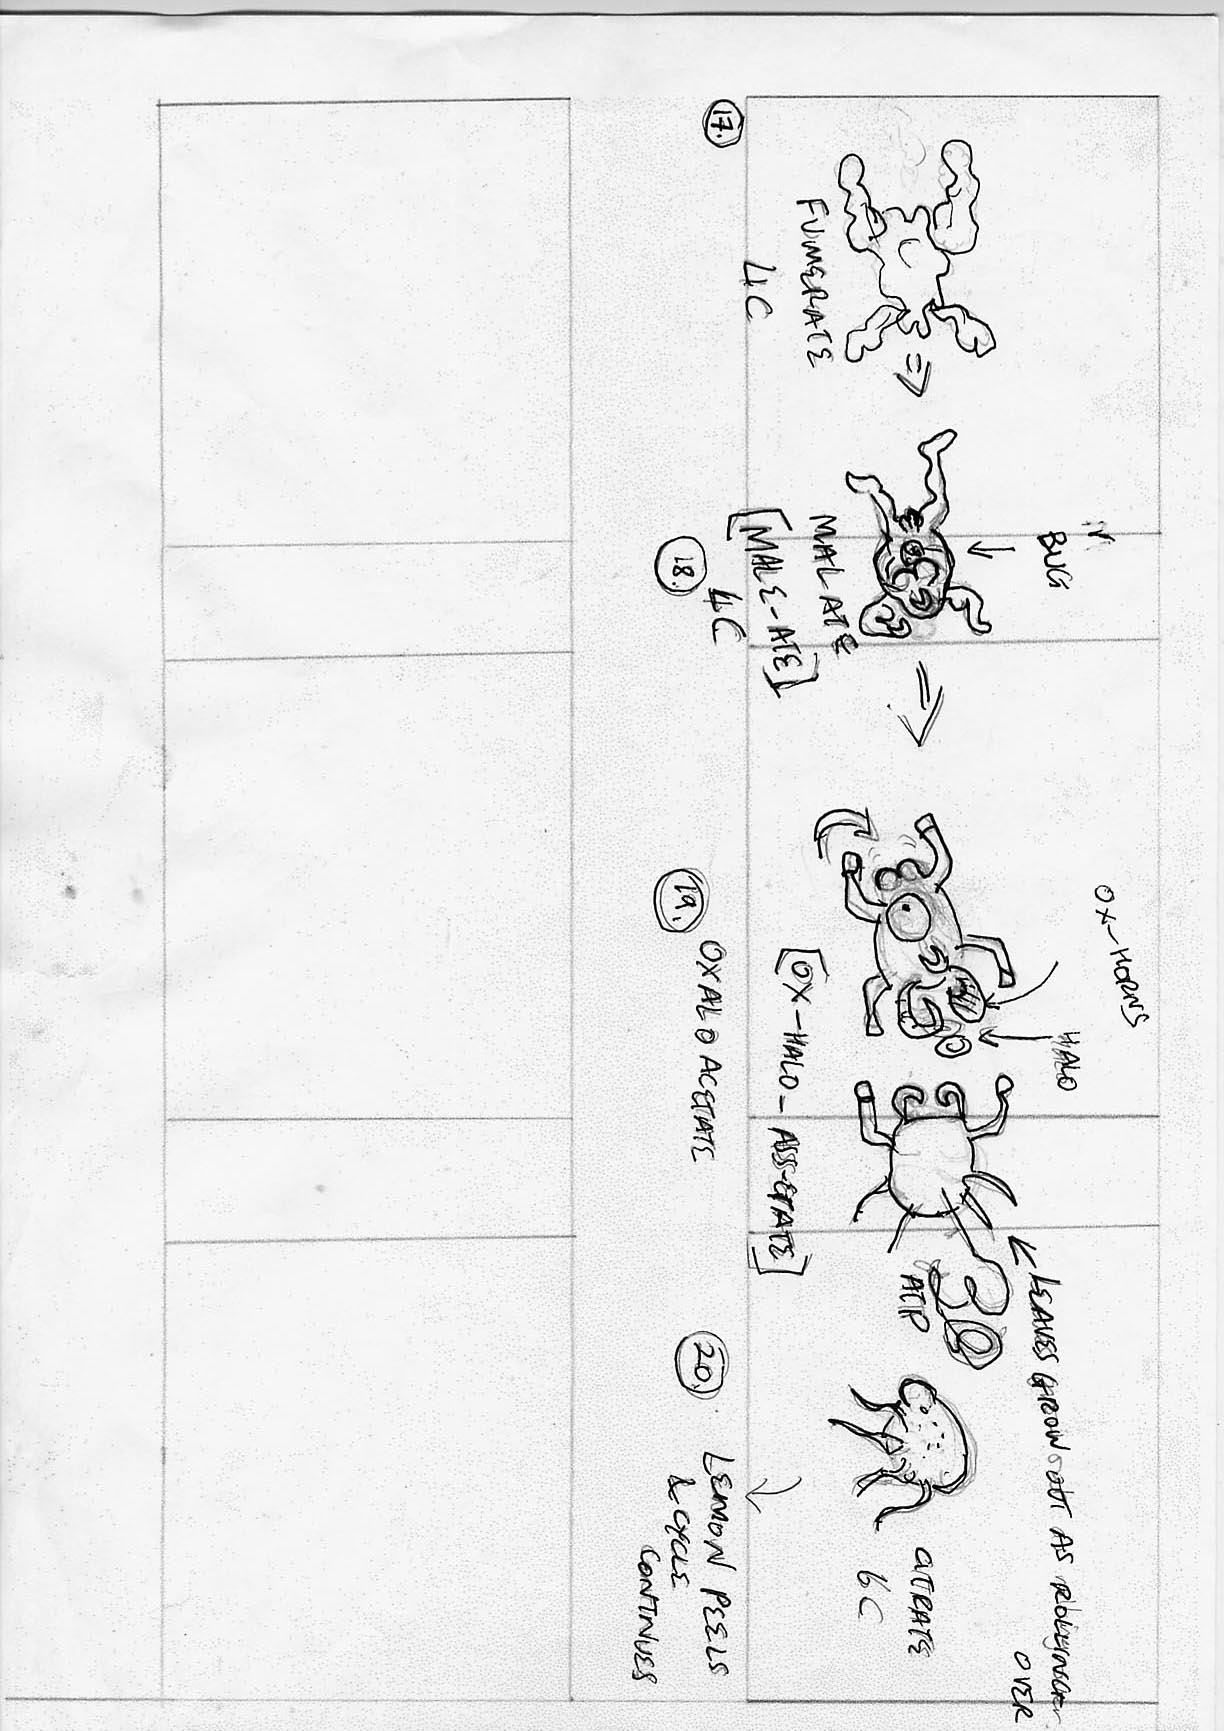 17.
FUMERATE
4C
BUG
MALATE
[MALE-ATE]
18.
4C
OX-HORNS
HALO
[OX-HALO-ASS-ETATE]
19.
OXALO ACETATE
LEAVES GROW OUT AS
OVER
ATP
CITRATE
6C
20.
LEMON PEELS
& CYCLE
CONTINUES